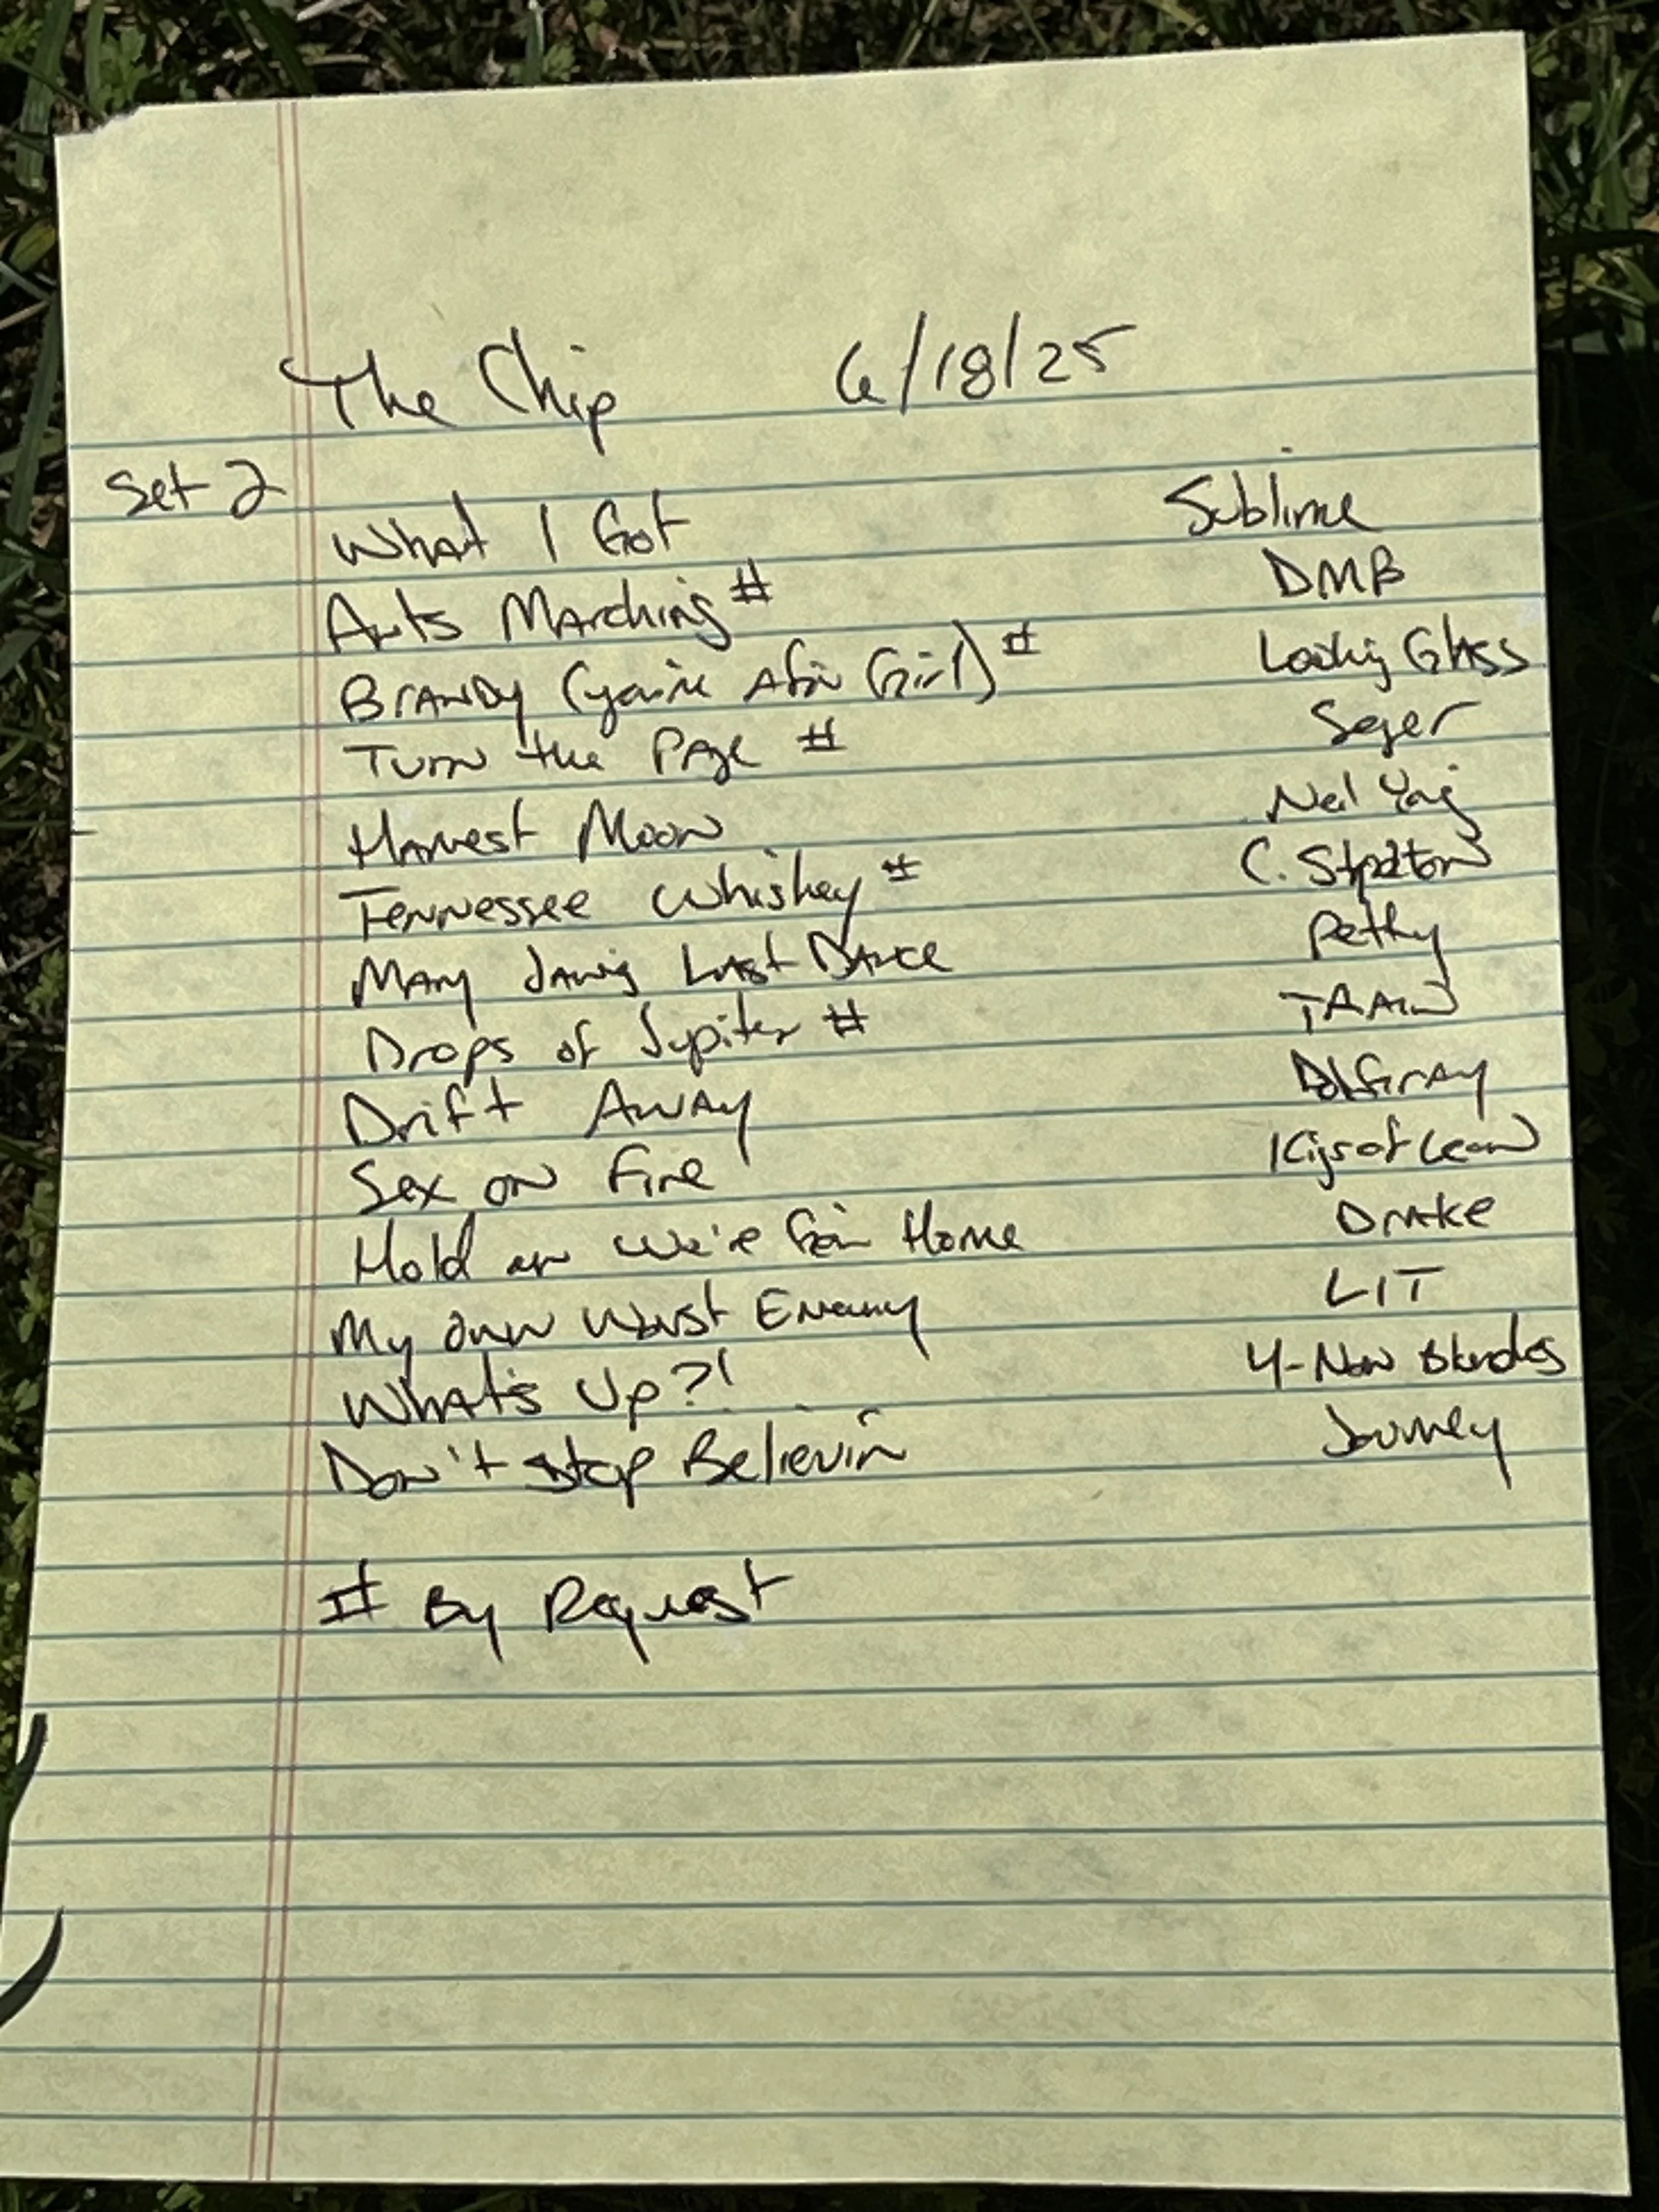 The Chip 6/18/25
Set 2
What I Got Sublime
Ants Marching # DMB
Brandy (you're a fin Girl) # Looking Glass
Turn the Page # Seger
Harvest Moon Neil Young
Tennessee Whiskey # C. Stapleton
Mary Janes Last Dance Petty
Drops of Jupiter # TRAIN
Drift Away DobGray
Sex on Fire Kings of Leon
Hold on We're Goin Home Drake
My Own Worst Enemy LIT
What's Up?! 4-Non Blondes
Don't Stop Believin Journey
# By Request